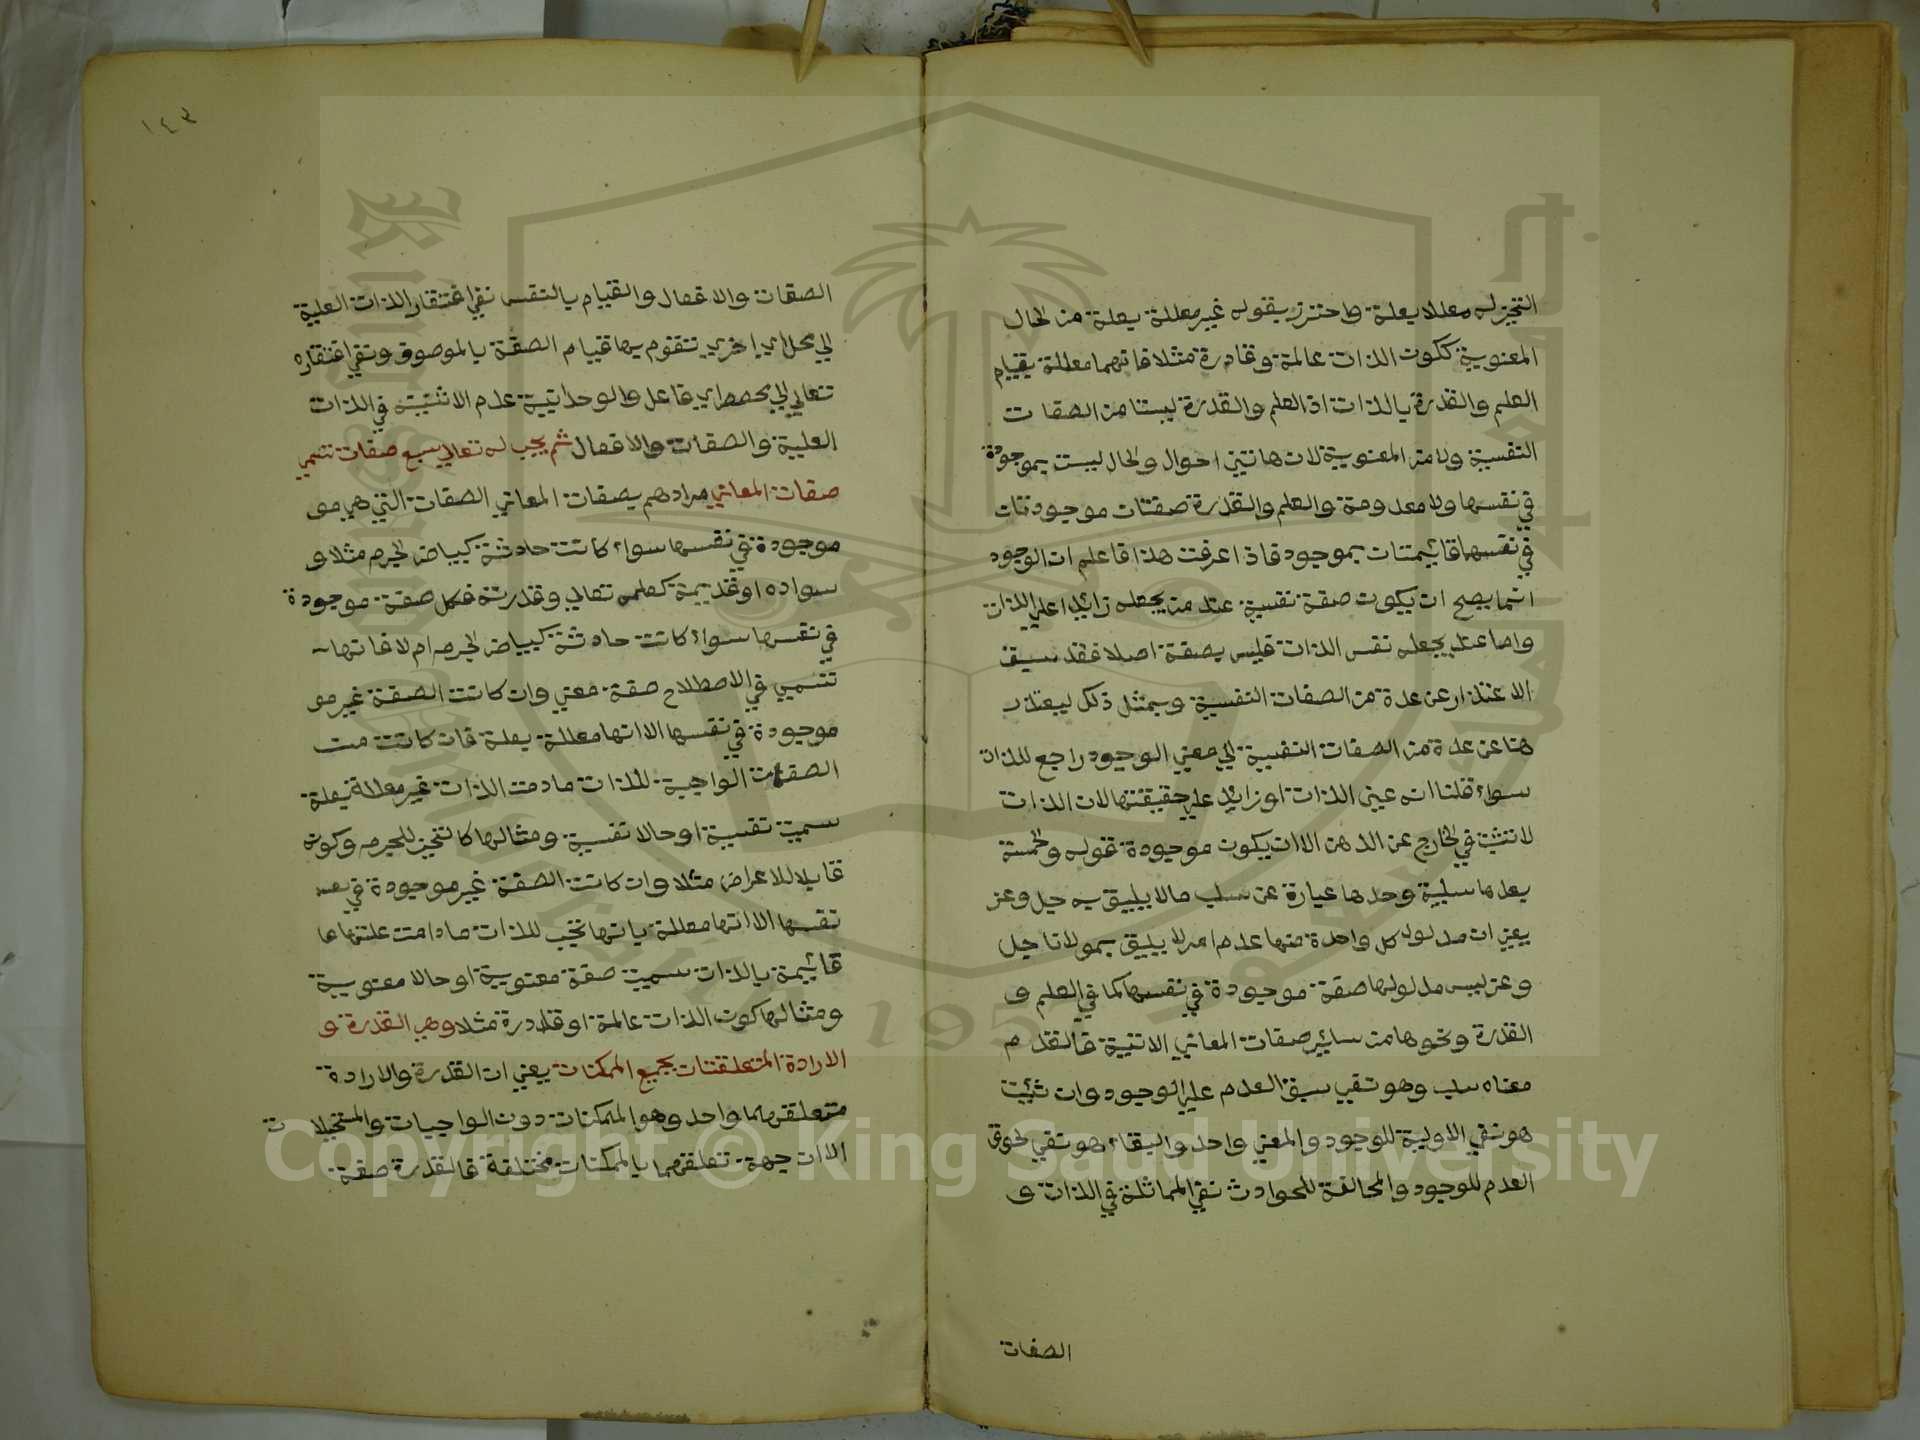 التحيز له معللا بعلة واحترز بقوله غير معللة بعلة من الحال
المعنوية ككون الذات عالمة وقادرة مثلا فانهما معللة بقيام
العلم والقدرة بالذات اذ العلم والقدرة ليستا من الصفات
النفسية ولا من المعنوية لان هاتين احوال والحال ليست بموجودة
في نفسها ولا معدومة والعلم والقدرة صفتان موجودتان
في نفسها قائيمتان بموجود فاذا عرفت هذا فاعلم ان الوجود
انما يصح ان يكون صفة نفسية عند من يجعله زايدا على الذات
واما عند يجعله نفس الذات فليس بصفة اصلا فقد سبق
الاعتذار عن عدة من الصفات النفسية وبمثل ذلك ليعتذر
هنا عن عدة من الصفات النفسية الي معني الوجود راجع للذات
سواء قلنا انه عين الذات او زايد علي حقيقتها لان الذات
لا تثبت في الخارج عن الذهن الا ان يكون موجودة قوله والخمسة
بعدها سلبية وحدها عبارة عن سلب مالا يليق به جل وعز
يعني ان مدلول كل واحدة منها عدم امر لا يليق بمولانا جل
وعز ليس مدلولها صفة موجودة في نفسها كما في العلم و
القدرة ونحوها من سائير صفات المعاني الاتية فالقدم
معناه سلب وهو نفي سبق العدم علي الوجود وان ثبت
هو نفي الاولية للوجود والمعني واحد والبقاء هو نفي لحوق
العدم للوجود والمخالفة للحوادث نفي المماثلة في الذات و
الصفات
١٤٣
الصفات والافعال والقيام بالنفس نفي افتقار الذات العلية
الي محل اي اخري تتقوم بها قيام الصفة بالموصوف ونفي افتقاره
تعالي الي مخصص اي فاعل والوحدانية عدم الاثنية في الذات
العلية والصفات والافعال ثم يجب له تعالي سبع صفات تسمي
صفات المعاني مرادهم بصفات المعاني الصفات التي هي مو
موجودة في نفسها سواء كانت حادثة كبياض الجرم مثلا و
سواده او قديمة كعلمه تعالي وقدرته فكل صفة موجودة
في نفسها سواء كانت حادثة كبياض الجرم ام لا فانها
تسمي في الاصطلاح صفة معني وان كانت الصفة غير مو
موجودة في نفسها الا انها معللة بعلة فان كانت مت
الصفات الواجبة للذات مادمت الذات غير معللة بعلة
سميت نفسية او حالا نفسية ومثالها كالتحيز للجرم وكونه
قابلا للاعراض مثلا وان كانت الصفة غير موجودة في
نفسها الا انها معللة بانها تجب للذات مادامت علتها
قائيمة بالذات سميت صفة معنوية او حالا معنوية
ومثالها كون الذات عالمة او قادرة مثلا وهي القدرة و
الارادة المتعلقتان بجميع الممكنات يعني ان القدرة والارادة
متعلقهما واحد وهو الممكنات دون الواجبات والمستحيلات
الا ان جهة تعلقهما بالممكنات مختلفة فالقدرة صفة
Copyright © King Saud University
1957